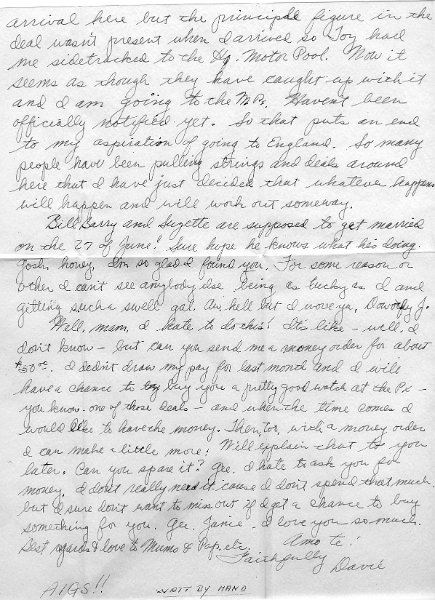 arrival here but the principle figure in the
deal wasn't present when I arrived so Joy had
me sidetracked to the Hq. Motor Pool. Now it
seems as though they have caught up with it
and I am going to the M.P.s. Haven't been
officially notified yet. So that puts an end
to my aspiration of going to England. So many
people have been pulling strings and deals around
here that I have just decided that whatever happens
will happen and will work out someway.
Bill Barry and Suzette are supposed to get married
on the 27 of June! Sure hope he knows what he's doing.
Gosh, honey, I'm so glad I found you. For some reason or
other I can't see anybody else being as lucky as I am
getting such a swell gal. Aw hell but I love ya, Dorothy J.
Well, mam, I hate to do this! It's like - well, I
don't know - but can you send me a money order for about
$50.00. I didn't draw my pay for last month and I will
have a chance to buy you a pretty good watch at the Px -
you know - one of those deals - and when the time comes I
would like to have the money. Then, too, with a money order
I can make a little more! Will explain that to you
later. Can you spare it? Gee, I hate to ask you for
money. I don't really need it cause I don't spend that much
but I sure don't want to miss out if I get a chance to buy
something for you. Gee, Janie! I love you so much.
Best regards & love to Mums & Pap, etc.
Amo te!
Faithfully
David
AIGS!!
WRIT BY HAND